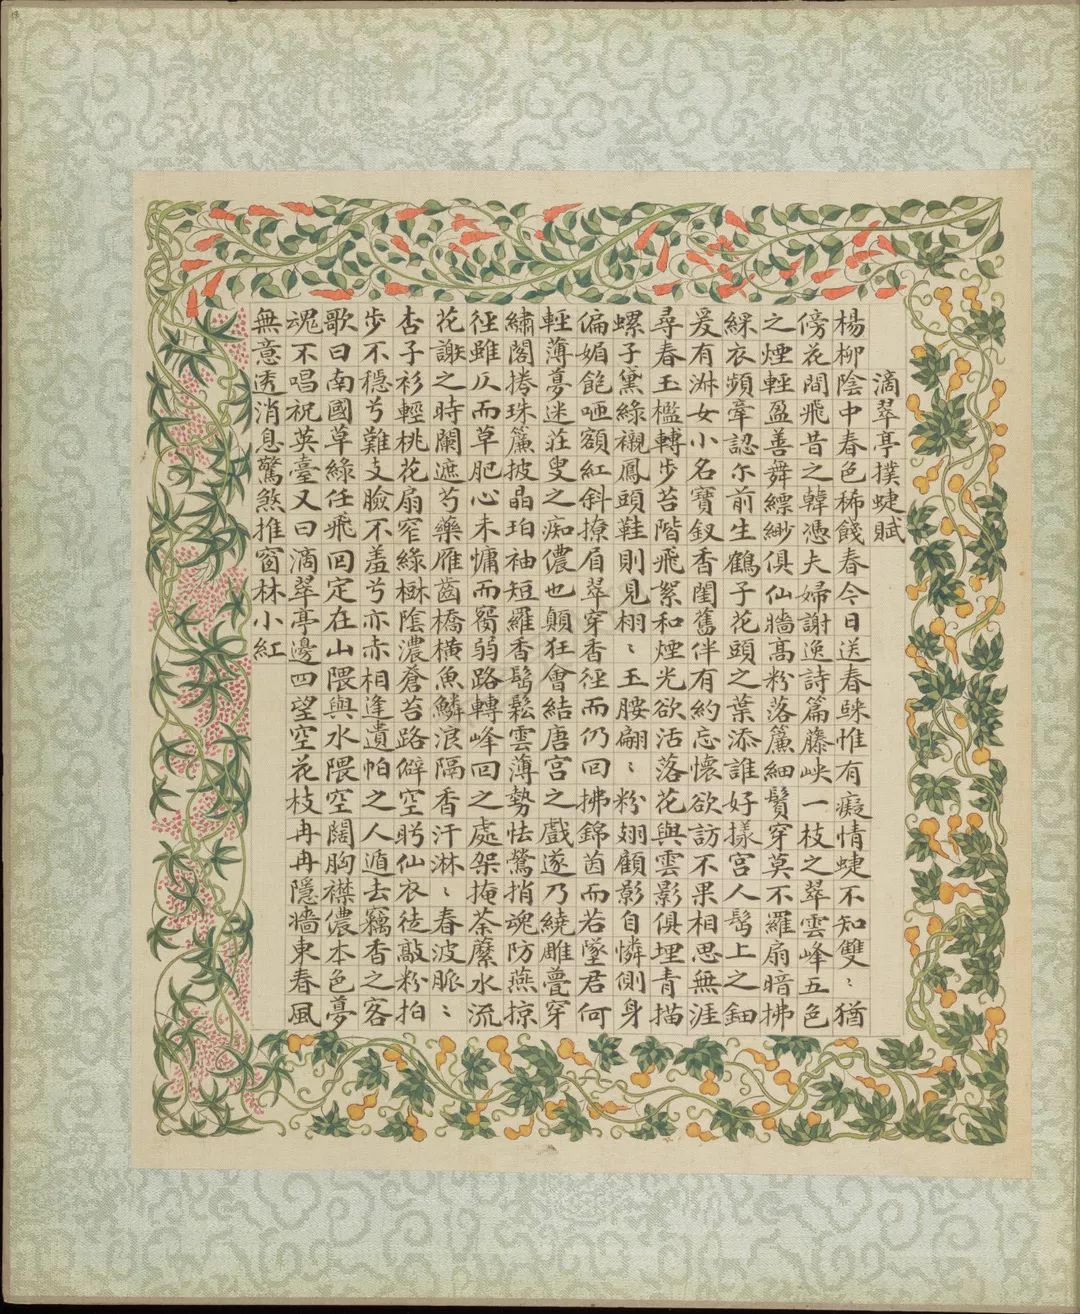 滴翠亭撲蜨賦
楊柳陰中春色稀餞春今日送春歸惟有癡情蜨不知雙〻猶
傍花間飛昔之韓憑夫婦謝逸詩篇藤峽一枝之翠雲峰五色
之煙輕盈善舞縹緲俱仙牆高粉落簾細鬢穿莫不羅扇暗拂
綵衣頻牽認尒前生鶴子花頭之葉添誰好樣宮人髩上之鈿
爰有淋女小名寶釵香閨舊伴有約忘懷欲訪不果相思無涯
尋春玉檻轉步苔階飛絮和煙光欲活落花與雲影俱埋青描
螺子黛綠襯鳳頭鞋則見栩〻玉腰翩〻粉翅顧影自憐側身
偏媚飽咂額紅斜撩眉翠穿香徑而仍回拂錦茵而若墜君何
輕薄夢迷莊叟之痴儂也顛狂會結唐宮之戲遂乃繞雕甍穿
繡閣捲珠簾披晶珀袖短羅香髩鬆雲薄勢怯鶯捎魂防燕掠
徑雖仄而草肥心未慵而僽弱路轉峰回之處架掩荼蘼水流
花謝之時闌遮芍藥雁齒橋橫魚鱗浪隔香汗淋〻春波脈〻
杏子衫輕桃花扇窄綠樾陰濃蒼苔路僻空眄仙衣徒敲粉拍
步不穩兮難支臉不羞兮亦赤相逢遺帕之人遁去竊香之客
歌曰南國草綠任飛回定在山隈與水隈空闊胸襟儂本色夢
魂不唱祝英臺又曰滴翠亭邊四望空花枝冉冉隱牆東春風
無意透消息驚煞推窗林小紅